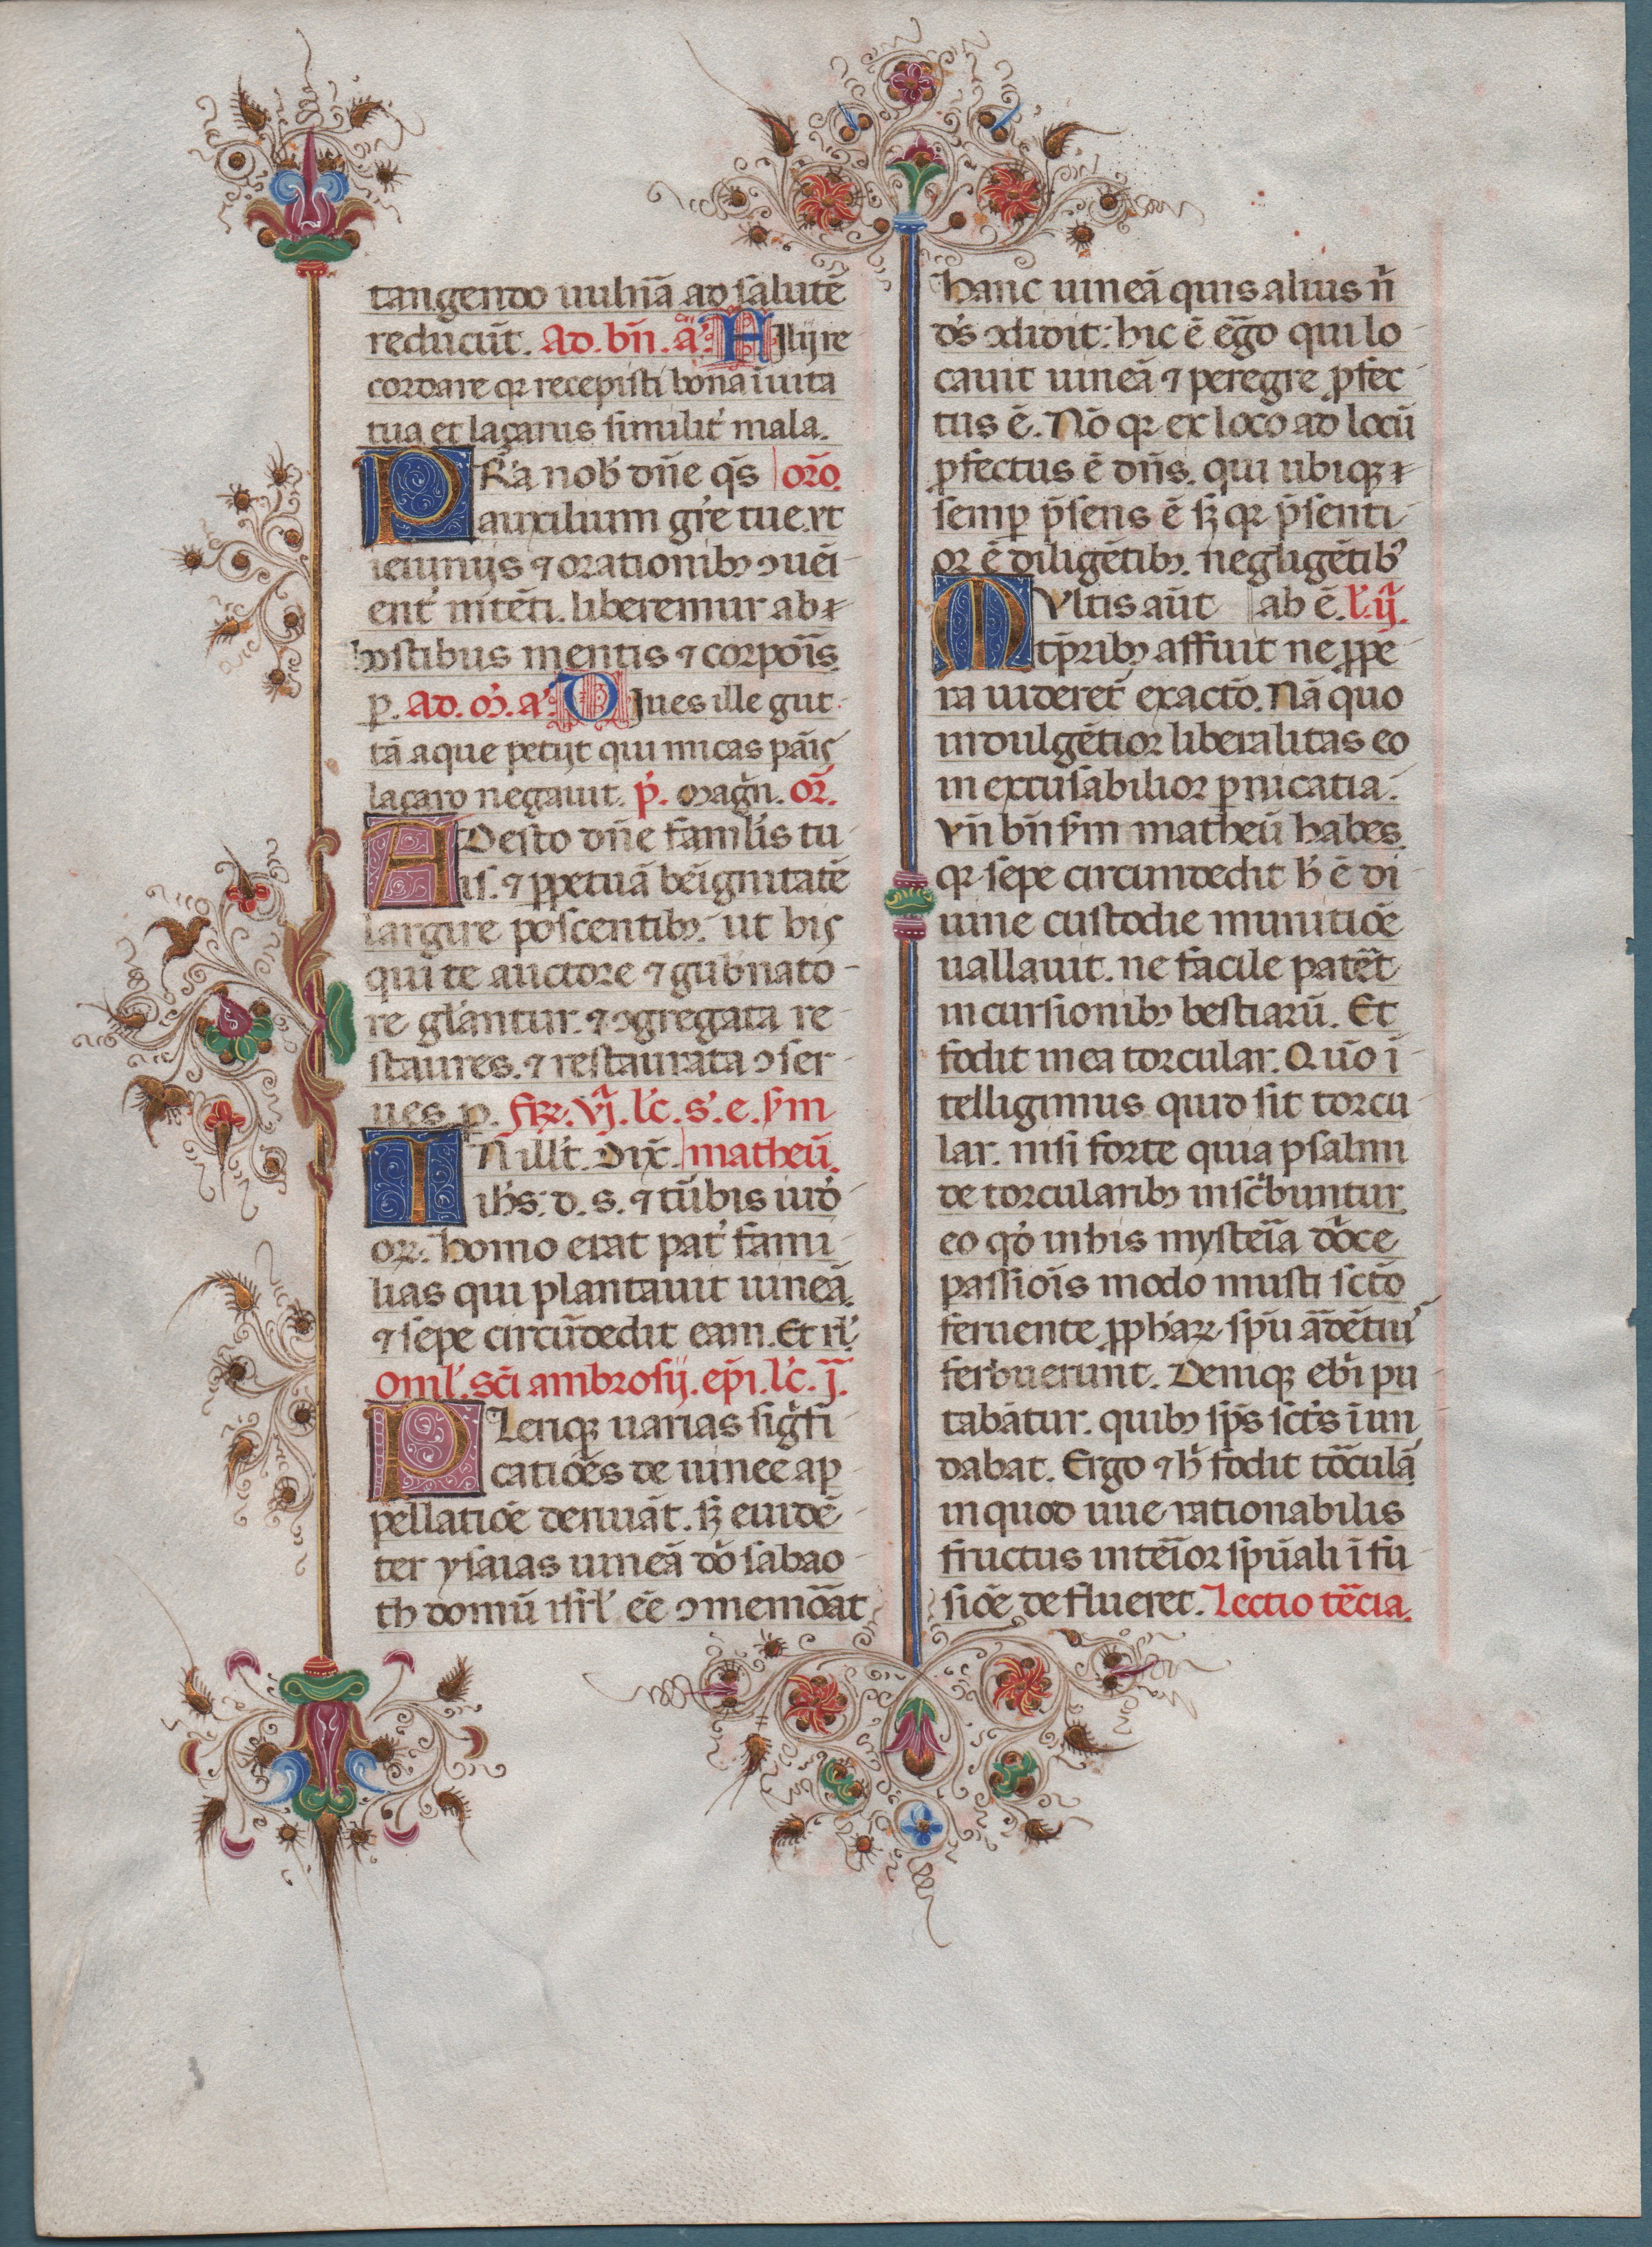 tangendo uulnā ad salutē
reducūt. Ad. bn̄. añ. Filij re
cordare qꝛ recepisti bona ī uita
tua et laçarus similit' mala.
PRā nob' dn̄e q̄s orō.
auxilium gr̄e tue. vt
ieiunijs ⁊ orationibꝫ ↄuēi
ent' ītēti. liberemur ab
hostibus mentis ⁊ corpoīs.
p. Ad. m̄. a'. Diues ille gut
tā aque petijt qui micas pāis
laçaro negauit. p̄. magn̄. or̄.
ADesto dn̄e famul'is tu
is. ⁊ ꝑpetuā bēignitatē
largire poscentibꝫ. ut his
qui te auctore ⁊ gub'nato
re gl'antur. ⁊ ↄgregata re
staures. ⁊ restaurata ↄser
ues. p. fꝛ. vj. l'c. s'. e. s'm
IN ill't. Dix̄. matheū.
ih's. d. s. ⁊ tūbis iud'
oꝝ. homo erat pat' fami
lias qui plantauit uineā.
⁊ sepe circūdedit eam. Et rl'
Oml'. sc̄i ambrosij. ep̄i. l'c. j.
PLeriqꝫ uarias sigfi
catiōes de uinee ap
pellatiōe deriuāt. sꝫ euidē
ter ysaias uineā dō sabao
th domū isrl' ēē ↄmemōat
hanc uineā quis alius n̄
d's ↄdidit: hic ē eḡo qui lo
cauit uineā ⁊ peregre ꝓfec
tus ē. Nō qꝛ ex loco ad locū
ꝓfectus ē dn̄s. qui ubiqꝫ ⁊
semꝑ p̄sens ē sꝫ qꝛ p̄senti
or ē diligētibꝫ. negligētib'
MVltis aūt ab ē. l'. ij.
tp̄ribꝫ affuit ne ꝓpe
ra uideret' exactō. Nā quo
indulgētior liberalitas eo
in excusabilior ꝑuicatia.
Vn̄ bn̄ s'm matheū habes.
qꝛ sepe circumdedit h' ē di
uine custodie munitiōe
uallauit. ne facile patēt
incursionibꝫ bestiarū. Et
fodit in ea torcular. Quō ī
telligimus quid sit torcu
lar. nisi forte quia psalmi
de torcularibꝫ inscbuntur.
eo qd' inhis mysteīa dn̄ce
passiois modo musti sctō
feruente ꝓpħaꝝ spū ādētiu'
ferbuerunt. Deniqꝫ ebr̄i pu
tabātur. quibꝫ sp̄s sct's īun
dabat. Ergo ⁊ h' fodit tōculā
in quod uue rationabilis
fructus intēior spūali ī fu
siōe de flueret. Lectio tēcia.